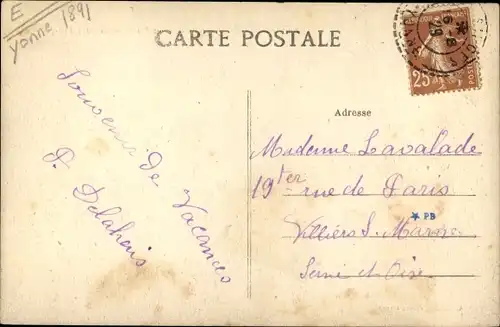 E
Yonne (89)
CARTE POSTALE
25
6-8
29
Souvenir de Vacances
P. Delahais
Adresse
Madame Lavalade
19ter rue de Paris
Villiers S. Marne
Seine et Oise
PB